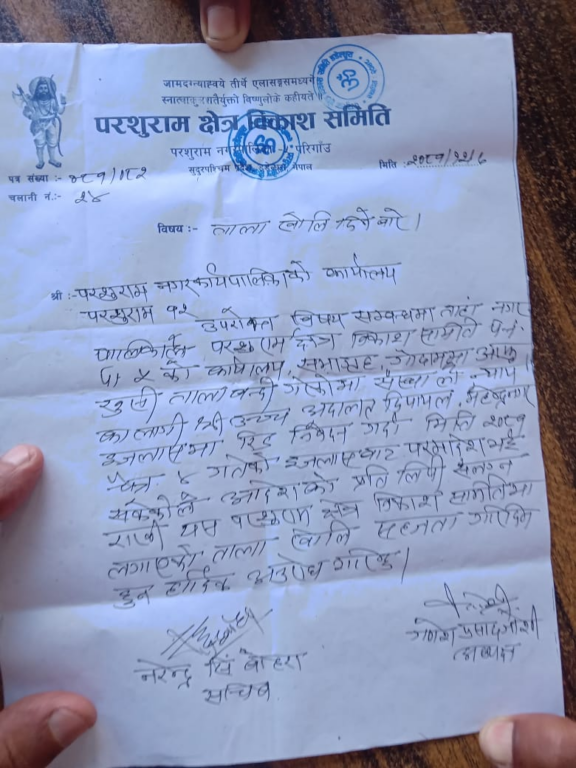 जामदग्न्याह्वये तीर्थे एलासङ्गसमध्यगे
विष्णुलोके कहीयते ॥
परशुराम क्षेत्र विकाश समिति
परशुराम परिगाँउ
सुदूरपश्चिम नेपाल
मिति :- २०८१/१२/७
पत्र संख्या :- ०८१/०८२
चलानी नं.:- २४
विषय :- ताला खोलि दिने बारे।
श्री :- परशुराम नगरकार्यपालिकाको कार्यालय
परशुराम १२
उपरोक्त विषय सम्बन्धमा तहाँ नगर
पालिकाले परशुराम क्षेत्र विकाश समिति प.न.
पा ४ को कार्यालय, सभागृह, गोदाममा आफू
खुसी तालाबन्दी गरेकोमा संस्थाले न्याय
का लागी श्री उच्च अदालत दिपायल, महेन्द्रनगर
इजलासमा रिट निवेदन गर्दा मिति २०८१
चैत्र ४ गतेको इजलासबाट परमादेश भई
सकेकोले आदेशको प्रति लिपी संलग्न
राखी यस परशुराम क्षेत्र विकाश समितिमा
लगाएको ताला खोलि सहजता गरिदिन
हुन हार्दिक अनुरोध गरिन्छ।
नरेन्द्र सिं बोहरा
सचिव
गणेश प्रसाद जोशी
अध्यक्ष